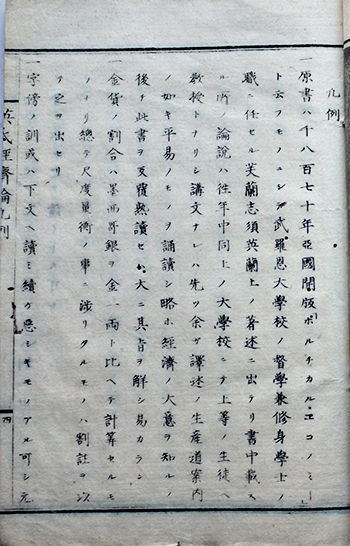 凡例
一原書ハ千八百七十年亞國開版ポルチカル、エコノミー
ト云フモノニシテ武羅恩大學校ノ督學兼修身學士ノ
職ニ任セル芙蘭志須英蘭上ノ著述ニ出テリ書中載ス
ル所ノ論說ハ往年中同上ノ大學校ニテ上等ノ生徒ヘ
教授トナリシ講文ナレハ先ツ余ガ譯述ノ生産道案内
ノ如キ平易ノモヲ誦讀シ略ホ經濟ノ大意ヲ知ルノ
後チ此書ヲ反覆熟讀セハ大ニ其旨ヲ解シ易カラン
一金貨ノ割合ハ墨西哥銀ヲ金一兩ト比ヘテ計算セルモ
ノナリ總テ尺度量衡ノ事ニ渉リタルモノハ割註ヲ以
テ之ヲ出セリ
一字傍ノ訓或ハ下文ヘ讀ミ續ケ惡シキモノアル可シ元
英氏經濟論凡例
四